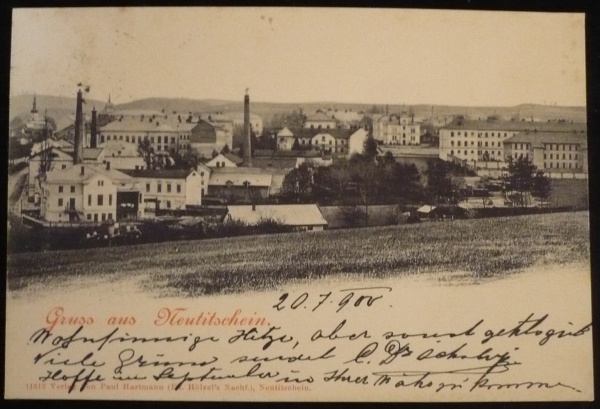 Gruss aus Neutitschein.
20. 7. 900.
Wahnsinnige Hitze, aber sonst
Viele Grüsse sendet
Hoffe im September in Ihrer Nähe zu kommen
Verlag von Paul Hartmann (L. V. Hölzel's Nachf.), Neutitschein.